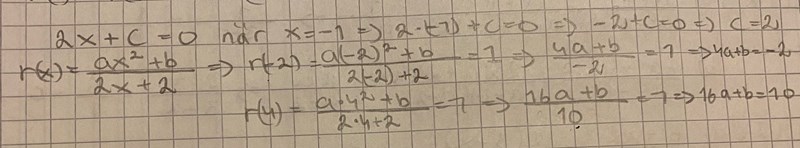 2x + C = 0 när x = -1 => 2·(-1) + C = 0 => -2 + C = 0 => C = 2
r(x) = (ax² + b)/(2x + 2) => r(-2) = (a(-2)² + b)/(2(-2) + 2) = 1 => (4a + b)/(-2) = 1 => 4a + b = -2
r(4) = (a·4² + b)/(2·4 + 2) = 1 => (16a + b)/10 = 1 => 16a + b = 10